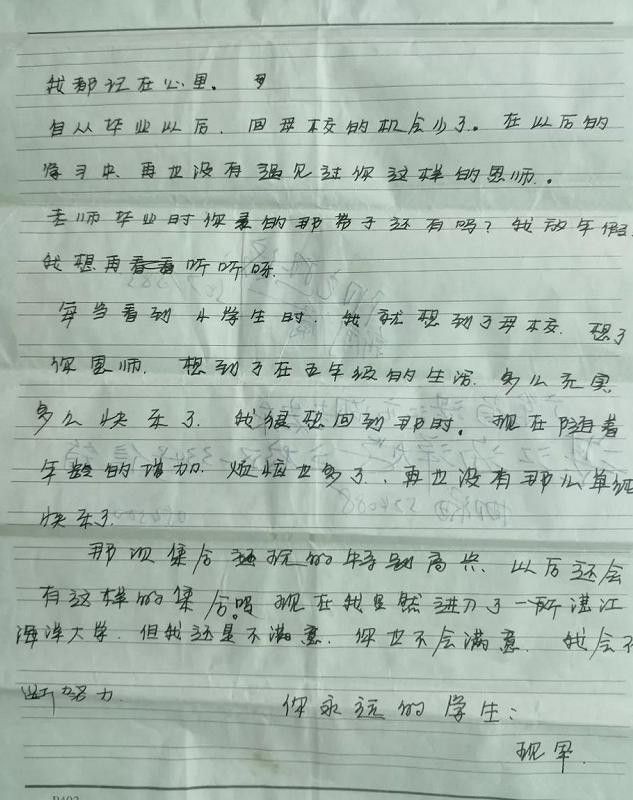 我都记在心里。
自从毕业以后，回母校的机会少了。在以后的
学习中，再也没有遇见过你这样的恩师。
老师毕业时你录的那带子还有吗？我放年假
我想再听听呀.
每当看到小学生时，我就想到了母校，想了
你恩师，想到了在五年级的生活，多么充实
多么快乐了，我很想回到那时。现在随着
年龄的增加，烦恼也多了，再也没有那么单纯
快乐了.
那次集合玩的特别高兴，以后还会
有这样的集合吗，现在我虽然进了一所湛江
海洋大学，但我还是不满意，你也不会满意，我会不
断努力
你永远的学生：
B403